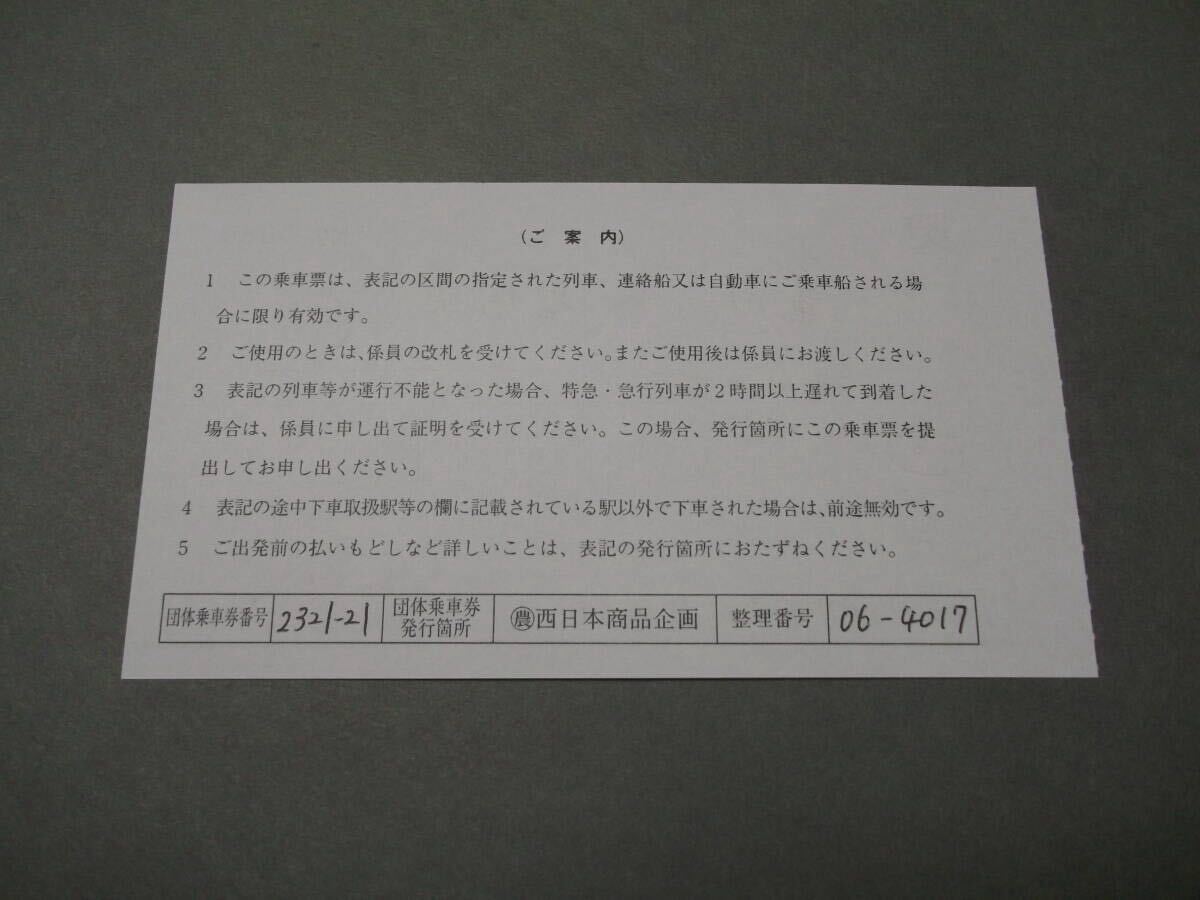 （ご　案　内）
1　この乗車票は、表記の区間の指定された列車、連絡船又は自動車にご乗車船される場
合に限り有効です。
2　ご使用のときは、係員の改札を受けてください。またご使用後は係員にお渡しください。
3　表記の列車等が運行不能となった場合、特急・急行列車が2時間以上遅れて到着した
場合は、係員に申し出て証明を受けてください。この場合、発行箇所にこの乗車票を提
出してお申し出ください。
4　表記の途中下車取扱駅等の欄に記載されている駅以外で下車された場合は、前途無効です。
5　ご出発前の払いもどしなど詳しいことは、表記の発行箇所におたずねください。
団体乗車券番号 2321-21 団体乗車券発行箇所 ㊢西日本商品企画 整理番号 06-4017